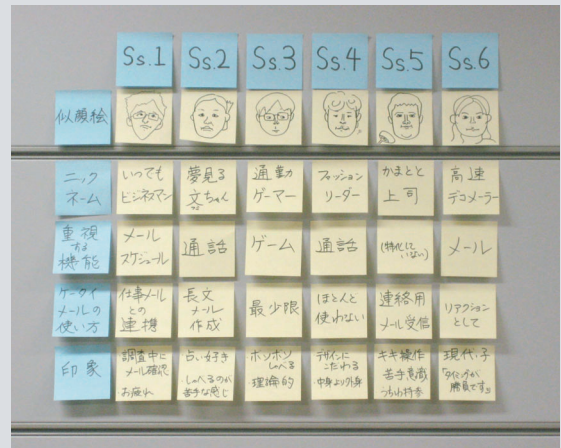 Ss.1
Ss.2
Ss.3
Ss.4
Ss.5
Ss.6
似顔絵
ニック
ネーム
いつでも
ビジネスマン
夢見る
文ちゃん
通勤
ゲーマー
ファッション
リーダー
かまとと
上司
高速
デコメーラー
重視
する
機能
メール
スケジュール
通話
ゲーム
通話
(特化して
いない)
メール
ケータイ
メールの
使い方
仕事メール
との
連携
長文
メール
作成
最少限
ほとんど
使わない
連絡用
メール受信
リアクション
として
印象
調査中に
メール確認
お疲れ
占い好き
しゃべるのが
苦手な感じ
ボソボソ
しゃべる
理論的
デザインに
こだわる
中身より外身
キキ操作
苦手意識
うちわ持参
現代っ子
「タイミングが
勝負です」